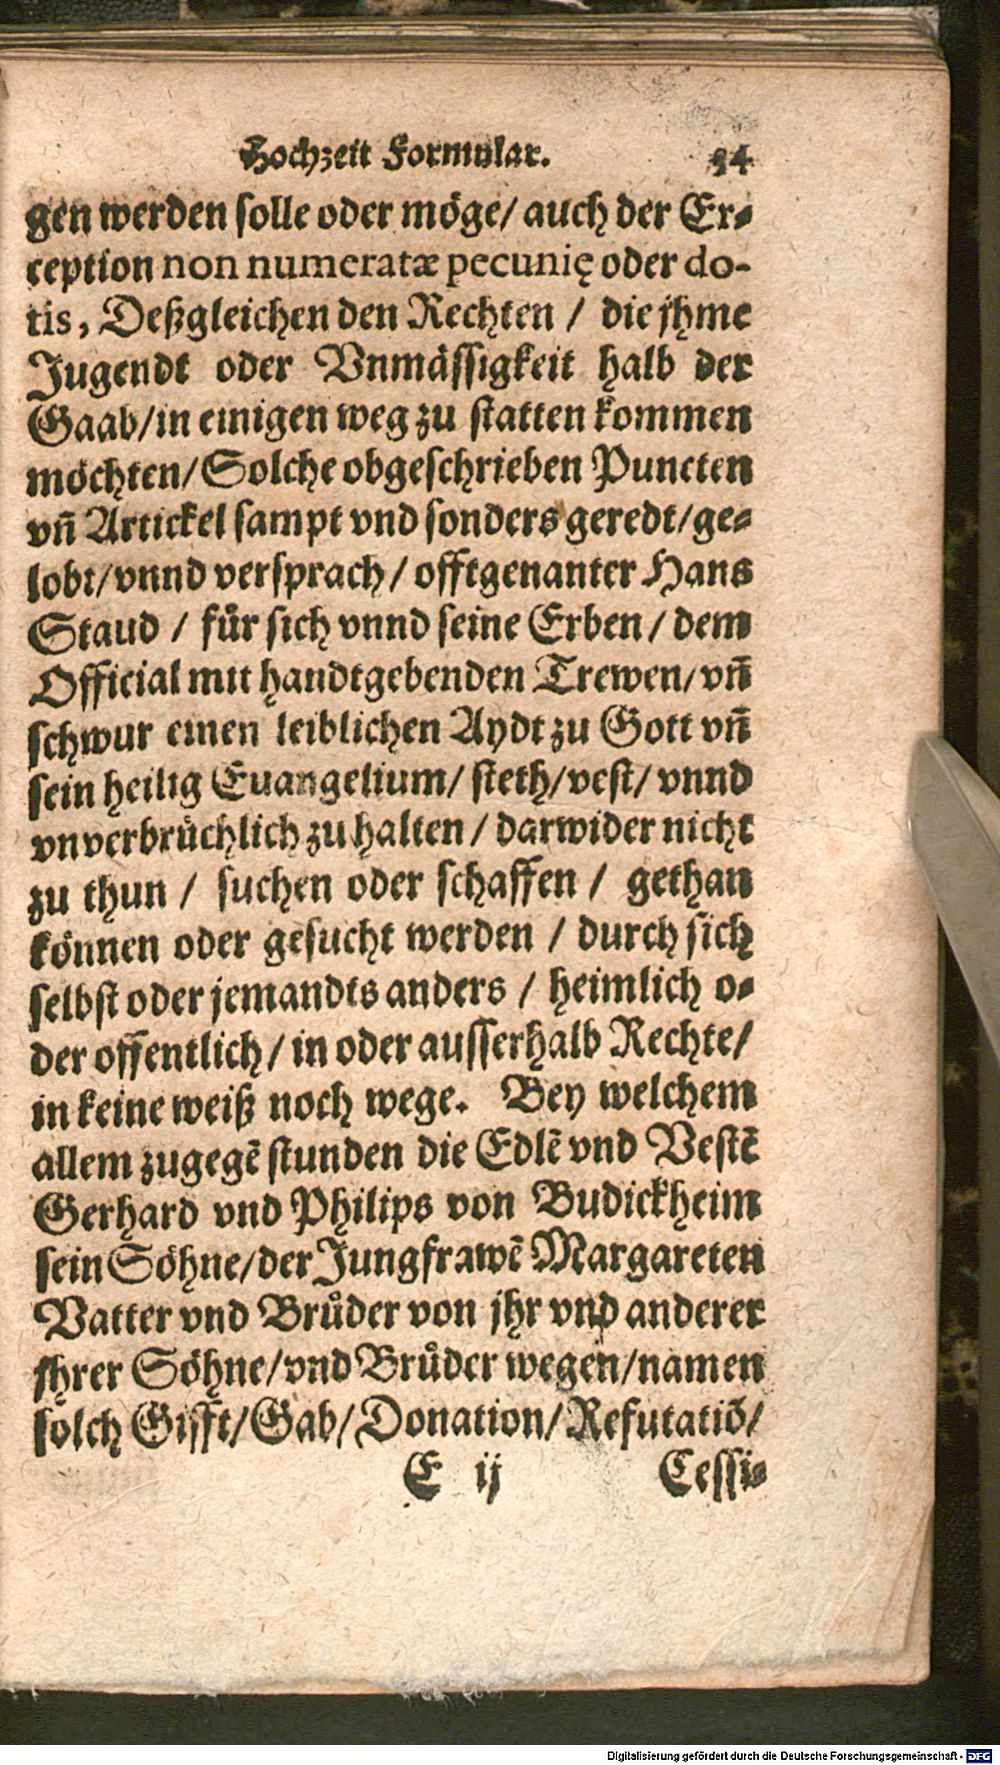 Hochzeit Formular. 34
gen werden solle oder möge/ auch der Ex-
ception non numeratæ pecunię oder do-
tis, Deßgleichen den Rechten / die jhme
Jugendt oder Vnmässigkeit halb der
Gaab/in einigen weg zu statten kommen
möchten/ Solche obgeschrieben Puncten
vñ Artickel sampt vnd sonders geredt/ge-
lobt/vnnd versprach/ offtgenanter Hans
Staud / für sich vnnd seine Erben/ dem
Official mit handtgebenden Trewen/ vñ
schwur einen leiblichen Aydt zu Gott vñ
sein heilig Euangelium/ steth/vest/ vnnd
vnverbrüchlich zu halten / darwider nicht
zu thun / suchen oder schaffen / gethan
können oder gesucht werden / durch sich
selbst oder jemandts anders / heimlich o-
der offentlich/ in oder ausserhalb Rechte/
in keine weiß noch wege. Bey welchem
allem zugegē stunden die Edlē vnd Vestē
Gerhard vnd Philips von Budickheim
sein Söhne/der Jungfrawē Margareten
Vatter vnd Brůder von jhr vnd anderer
jhrer Söhne/vnd Brůder wegen/namen
solch Gifft/Gab/Donation/Refutatiõ/
E ij Cessi-
Digitalisierung gefördert durch die Deutsche Forschungsgemeinschaft - DFG